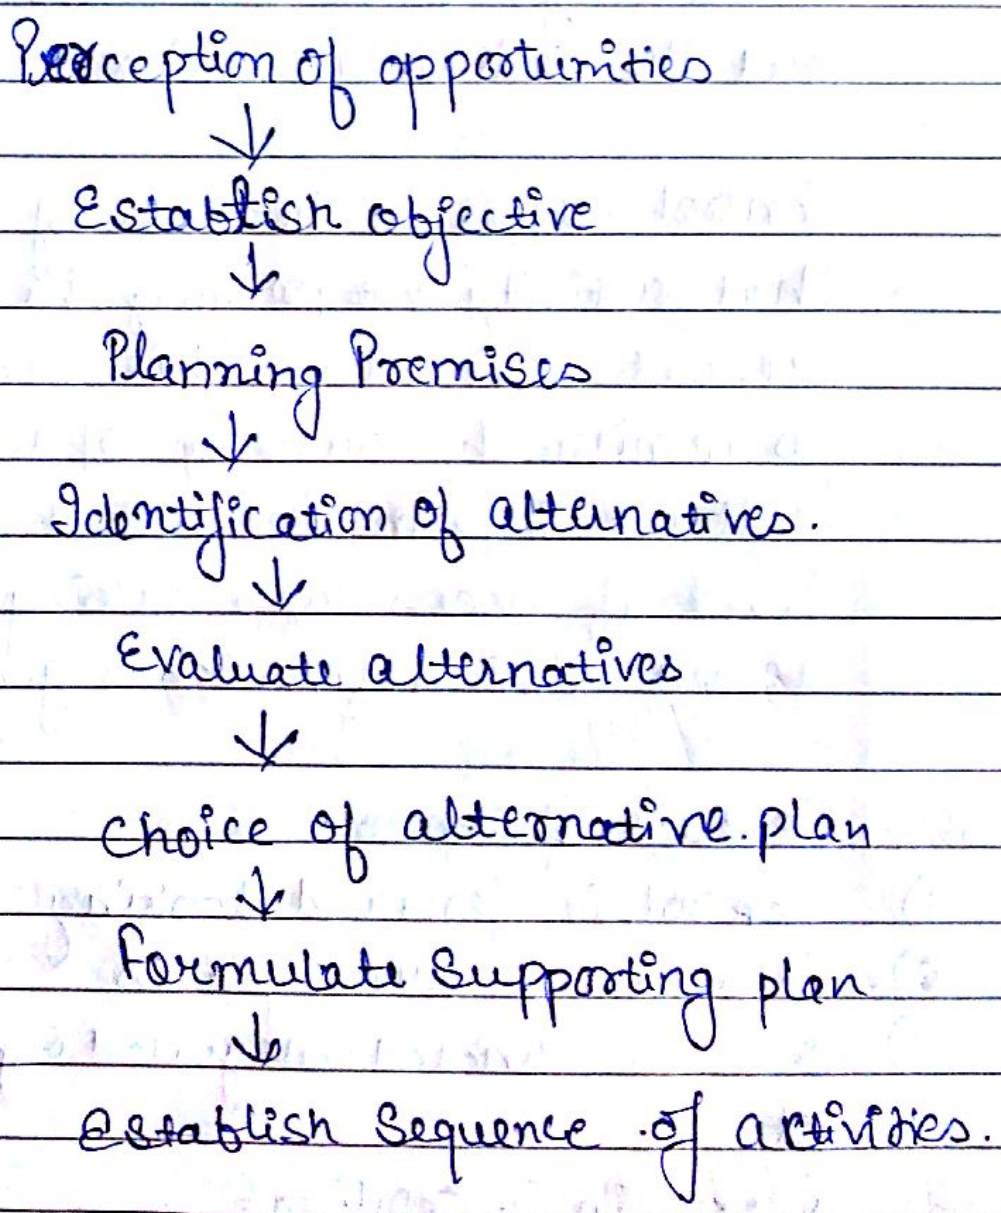 Perception of opportunities
↓
Establish objective
↓
Planning Premises
↓
Identification of alternatives.
↓
Evaluate alternatives
↓
Choice of alternative.plan
↓
Formulate Supporting plan
↓
establish Sequence of activities.